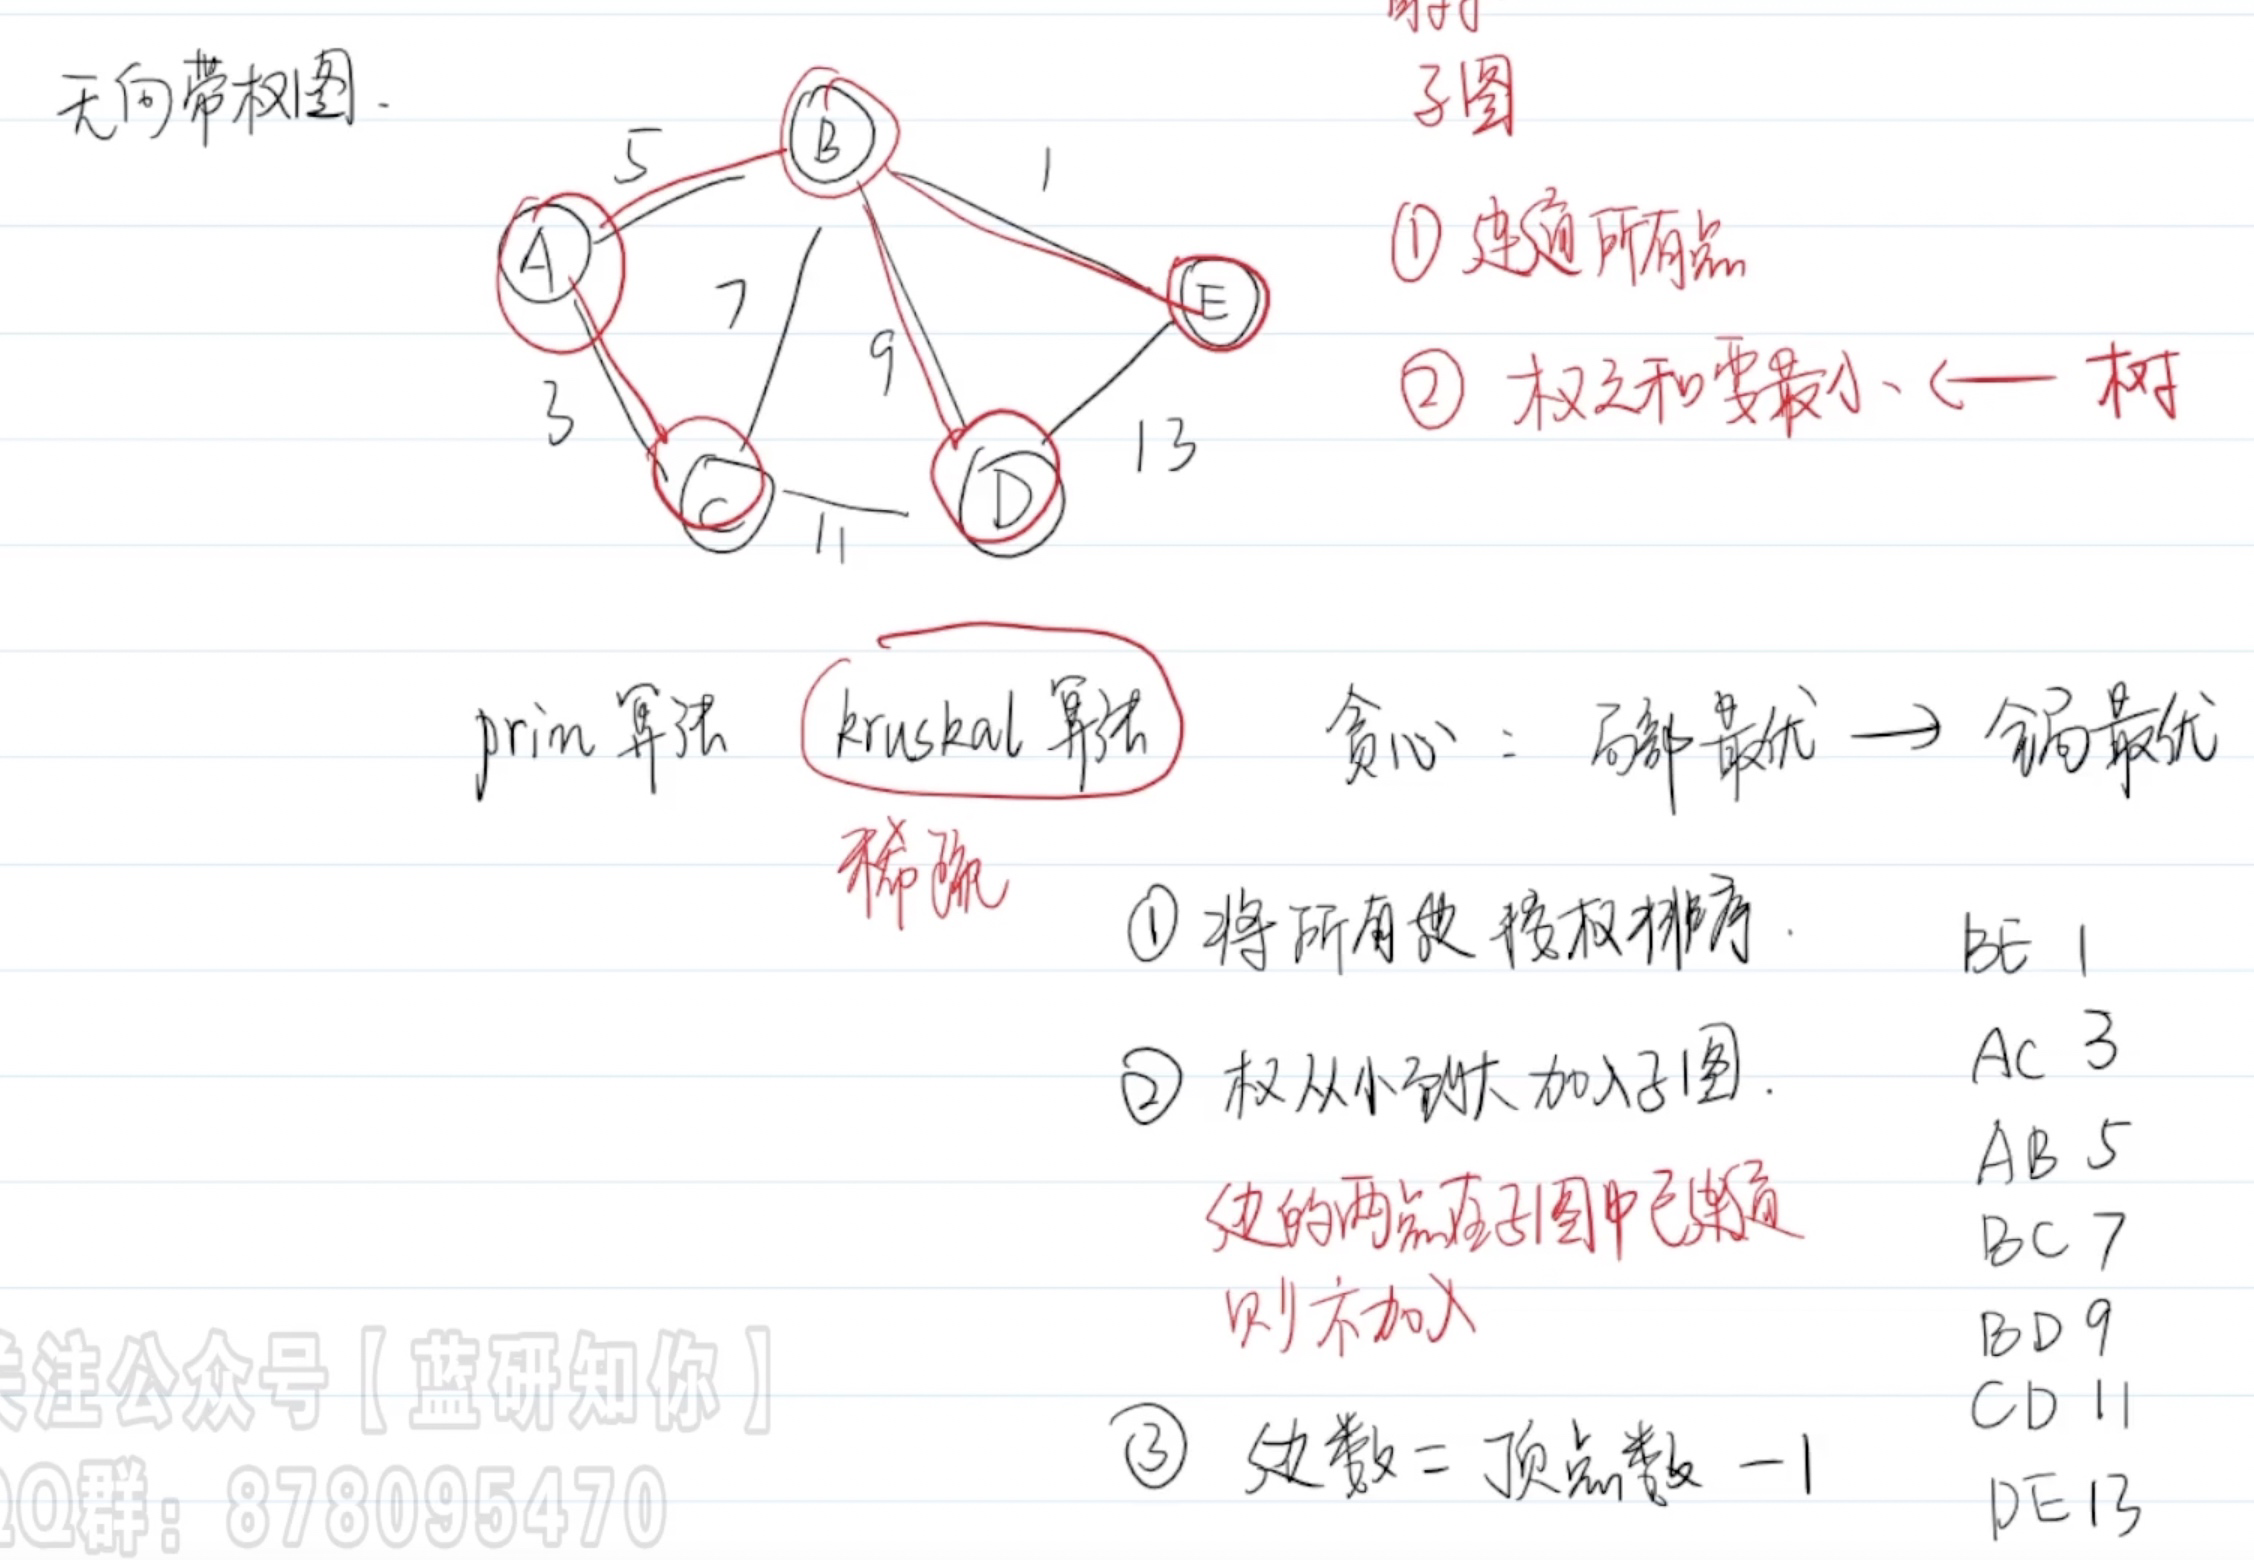 无向带权图.
子图
① 连通所有点
② 权之和要最小、 ← 树
A
B
C
D
E
5
1
7
9
3
13
11
prim 算法 kruskal 算法 贪心: 局部最优 → 全局最优
稀疏
① 将所有边按权排序.
② 权从小到大加入子图.
边的两点在子图中已连通
则不加入
③ 边数 = 顶点数 - 1
BE 1
AC 3
AB 5
BC 7
BD 9
CD 11
DE 13
关注公众号【蓝研知你】
QQ群: 878095470